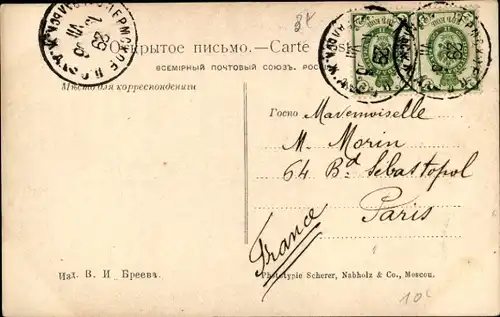 Открытое письмо. — Carte
ВСЕМІРНЫЙ ПОЧТОВЫЙ СОЮЗЪ. РОС
Мѣсто для корреспонденціи
Госпо Mademoiselle
M. Morin
64 Bd. Sebastopol
Paris
France
Изд. В. И Бреевъ.
Phototypie Scherer, Nabholz & Co., Moscou.